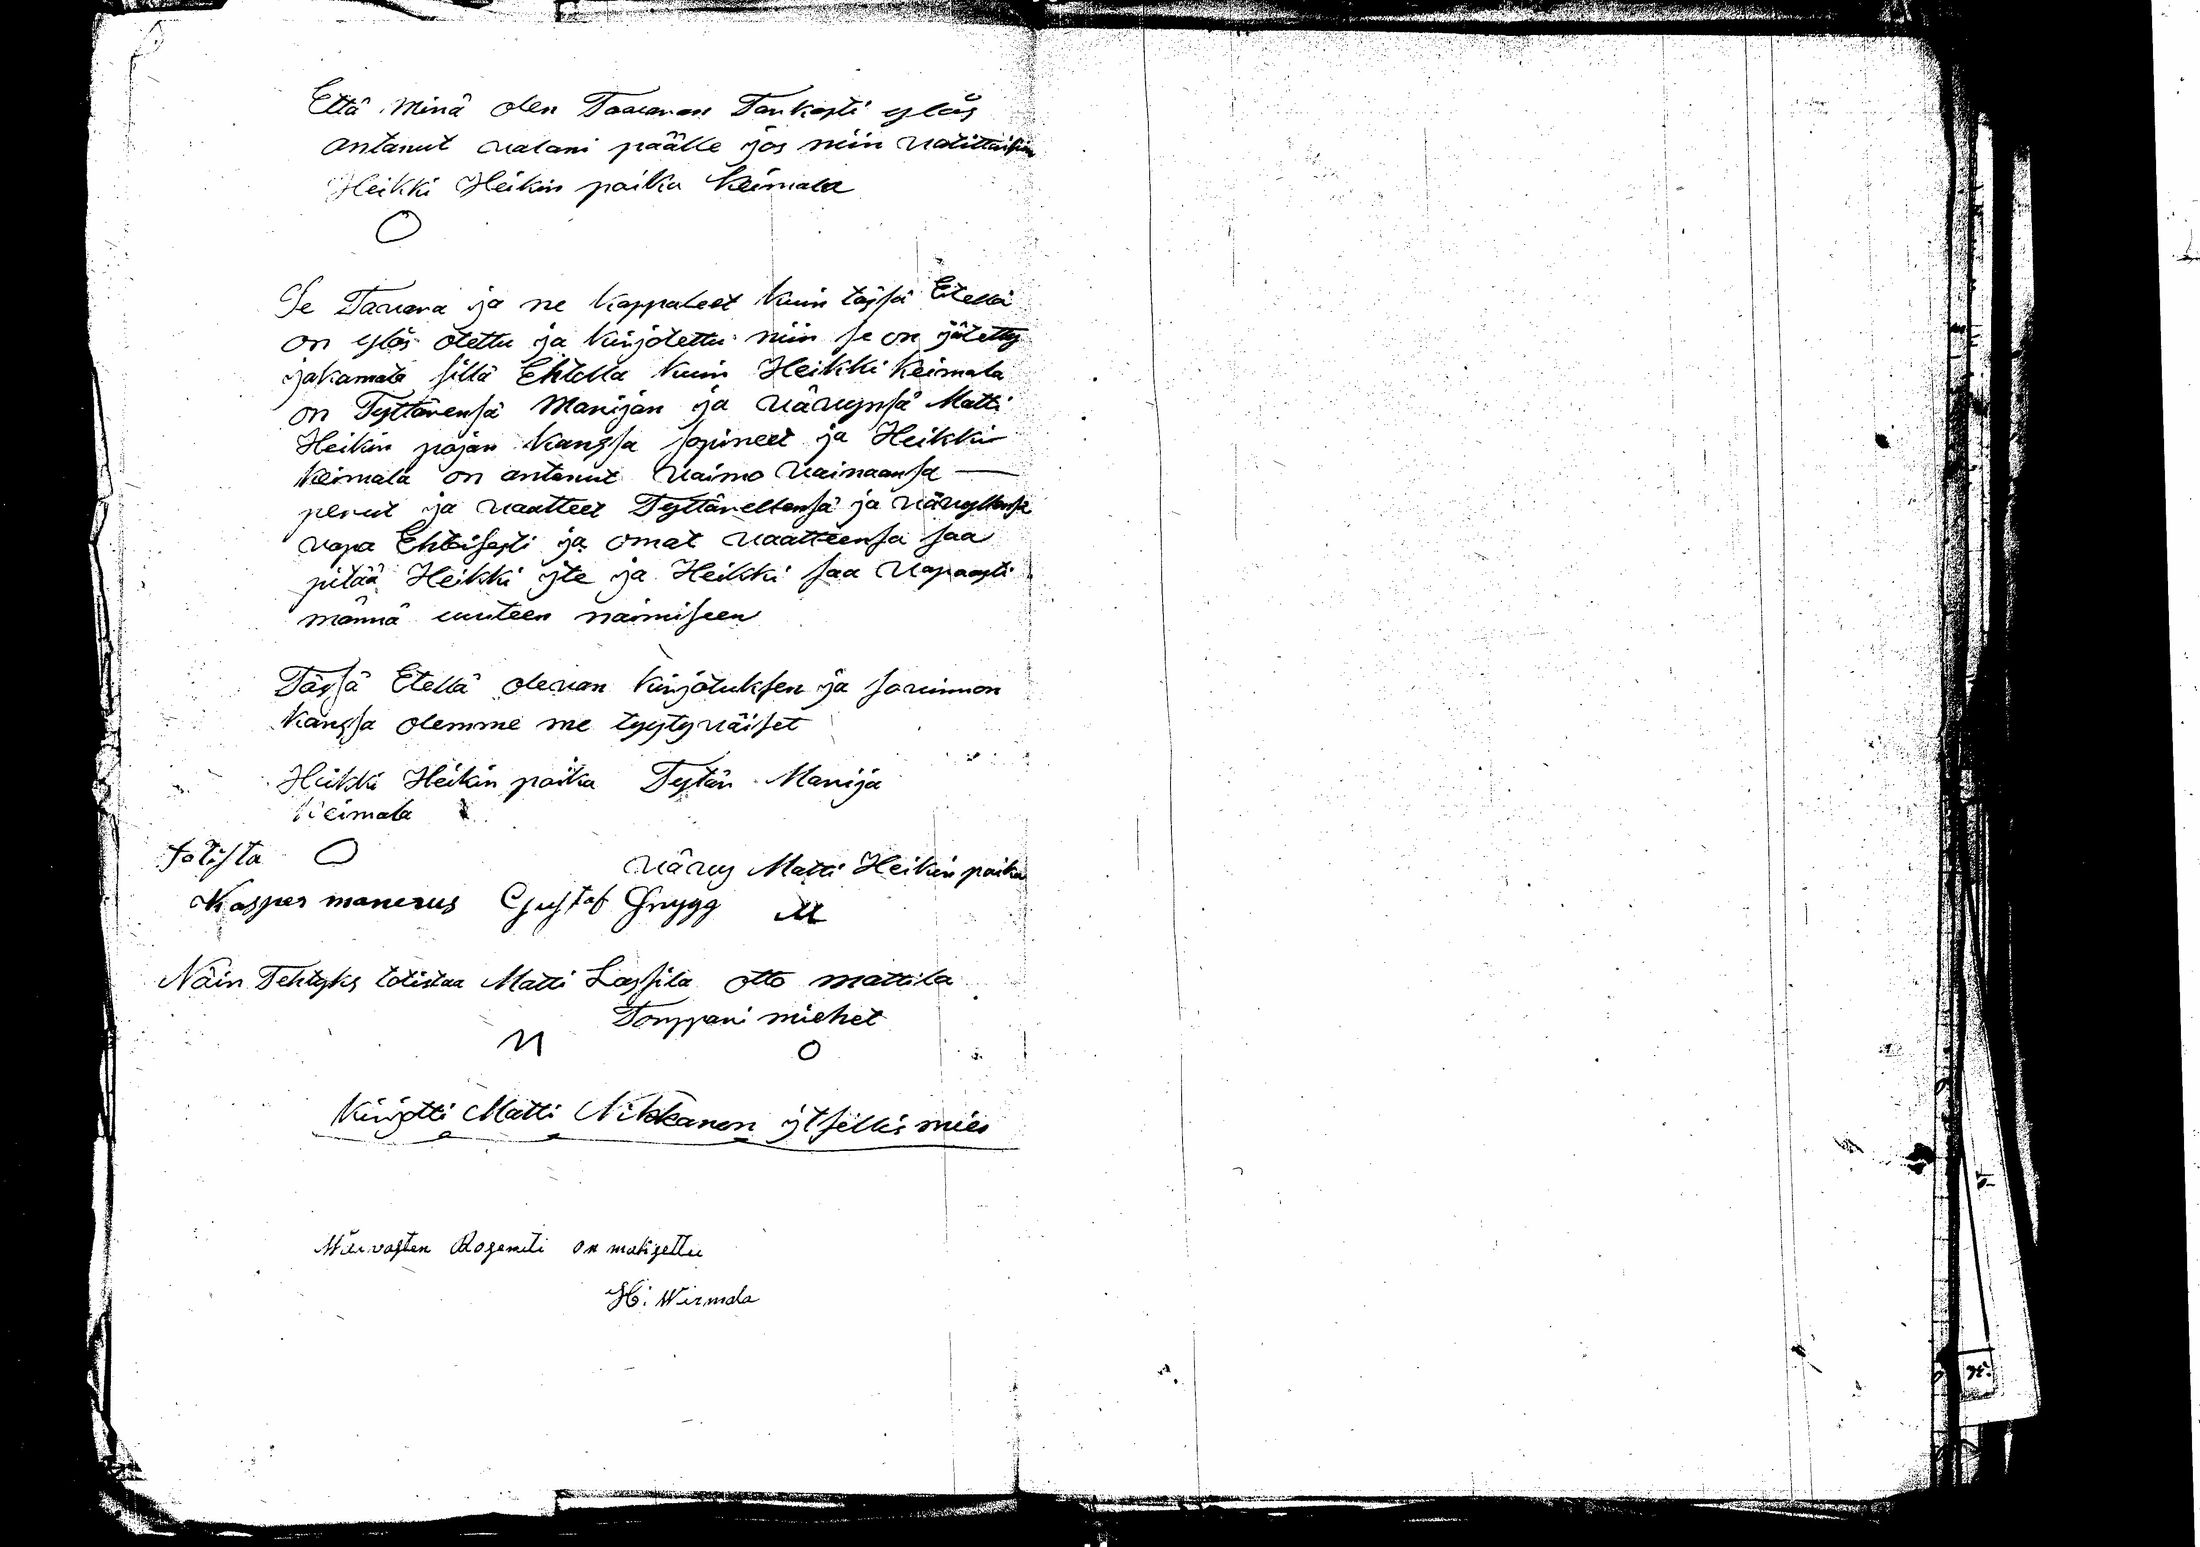 Että Minä olen Taavaran Tarkasti ylös
antanut valani päälle jos niin vatittaisin
Heikki Heikin poika Keimala
O
Se Tavara ja ne Kappaleet kuin tässä Etellä
on ylös otettu ja kirjotettu niin se on jätetty
jakamata sillä Ehtolla kuin Heikki Keimala
on Tyttärensä Marijan ja vävynsä Matti
Heikin pojan kanssa sopineet ja Heikki
Keimala on antanut vaimo vainaansa
perut ja vaatteet Tyttärellensä ja vävyllensä
vapa Ehtoisesti ja omat vaatteensa saa
pitää Heikki jte ja Heikki saa vapaasti
männä uuteen naimiseen
Tässä Etellä olevan kirjotuksen ja sovinnon
kanssa olemme me tyytyväiset
Heikki Heikin poika Tytär Marija
Keimala
totista O
vävy Matti Heikin poika
Kasper manerus Gustaf Snygg M
Näin Tehtyks totistaa Matti Lassila otto mattila
Torppari miehet
M O
Kirjotti Matti Nikkanen jtsellis mies
on maksettu
H. Wirmala